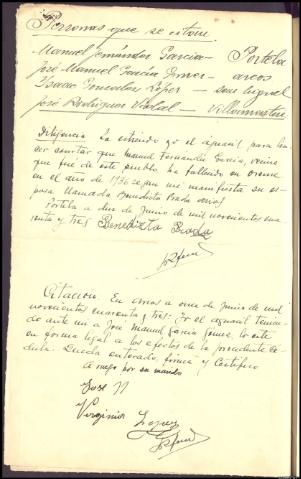 Personas que se citan
Manuel Fernández García - Portela
José Manuel García Gomez - arcos
Isaac Gonzalez López - San Miguel
José Rodríguez Vidal - Villamartin
Diligencia. La extiendo yo el aguacil para ha-
cer constar que Manuel Fernandez García, vecino
que fué de este pueblo, ha fallecido en Orense
en el año de 1936 segun me manifiesta su es-
posa llamada Benedicta Prada
Portela a diez de Junio de mil novecientos cua-
renta y tres Benedicta Prada
Citacion. En arcos a once de Junio de mil
novecientos cuarenta y tres: Yo el aguacil tenien-
do ante mi a José Manuel García Gomez, lo cité
en forma legal a los efectos de la precedente cé-
dula. Queda enterado, firma y Certifico
a ruego por su mando
Jose
Virginio Lopez